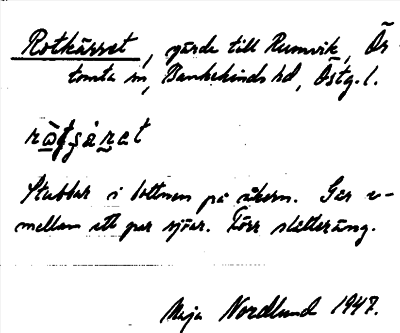 Rotkärret, gärde till Rumvik, Ör-
tomta sn, Bankekinds hd, Östg. l.
ròtșärat
Stubbar i bottnen på åkern. Ger e-
mellan ett par sjöar. Förr slåtteräng.
Maja Nordlund 1947.